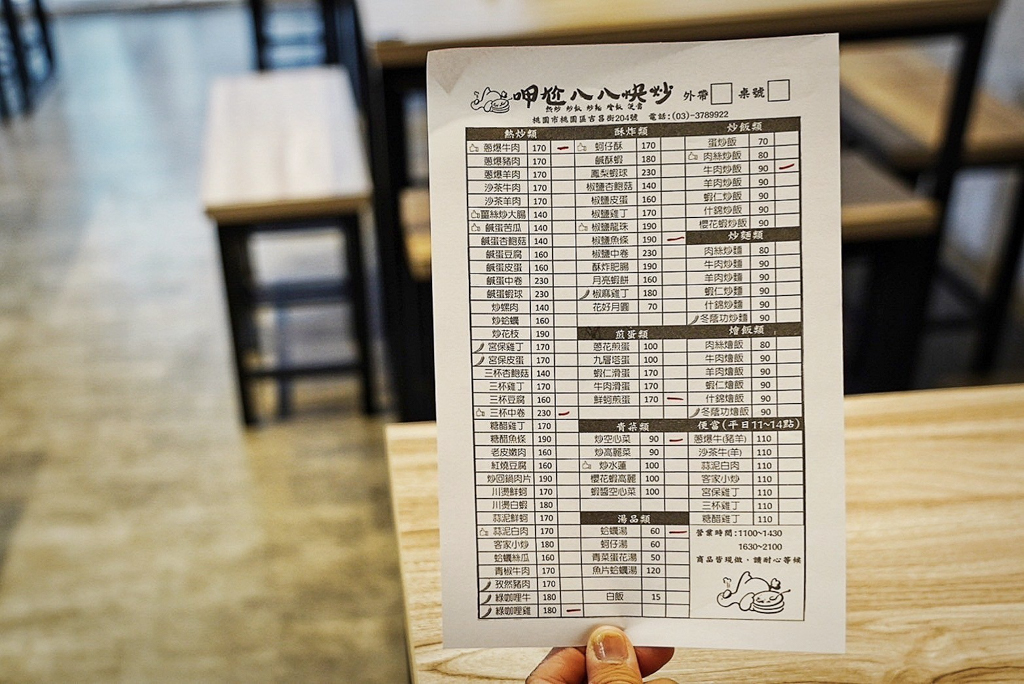 呷尬八八快炒 外帶 桌號
熱炒 炒飯 炒麵 燴飯 便當
桃園市桃園區吉昌街204號 電話:(03)-3789922
熱炒類
蔥爆牛肉 170
蔥爆豬肉 170
蔥爆羊肉 170
沙茶牛肉 170
沙茶羊肉 170
薑絲炒大腸 140
鹹蛋苦瓜 140
鹹蛋杏鮑菇 140
鹹蛋豆腐 160
鹹蛋皮蛋 160
鹹蛋中卷 230
鹹蛋蝦球 230
炒螺肉 140
炒蛤蠣 160
炒花枝 190
宮保雞丁 170
宮保皮蛋 170
三杯杏鮑菇 140
三杯雞丁 170
三杯豆腐 160
三杯中卷 230
糖醋雞丁 170
糖醋魚條 190
老皮嫩肉 160
紅燒豆腐 160
炒回鍋肉片 190
川燙鮮蚵 170
川燙白蝦 180
蒜泥鮮蚵 170
蒜泥白肉 170
客家小炒 180
蛤蠣絲瓜 160
青椒牛肉 170
孜然豬肉 170
綠咖哩牛 180
綠咖哩雞 180
酥炸類
蚵仔酥 170
鹹酥蝦 180
鳳梨蝦球 230
椒鹽杏鮑菇 140
椒鹽皮蛋 160
椒鹽雞丁 170
椒鹽龍珠 190
椒鹽魚條 190
椒鹽中卷 230
酥炸肥腸 190
月亮蝦餅 160
椒麻雞丁 180
花好月圓 70
煎蛋類
蔥花煎蛋 100
九層塔蛋 100
蝦仁滑蛋 170
牛肉滑蛋 170
鮮蚵煎蛋 170
青菜類
炒空心菜 90
炒高麗菜 90
炒水蓮 100
櫻花蝦高麗 100
蝦醬空心菜 100
湯品類
蛤蠣湯 60
蚵仔湯 60
青菜蛋花湯 50
魚片蛤蠣湯 120
白飯 15
炒飯類
蛋炒飯 70
肉絲炒飯 80
牛肉炒飯 90
羊肉炒飯 90
蝦仁炒飯 90
什錦炒飯 90
櫻花蝦炒飯 90
炒麵類
肉絲炒麵 80
牛肉炒麵 90
羊肉炒麵 90
蝦仁炒麵 90
什錦炒麵 90
冬蔭功炒麵 90
燴飯類
肉絲燴飯 80
牛肉燴飯 90
羊肉燴飯 90
蝦仁燴飯 90
什錦燴飯 90
冬蔭功燴飯 90
便當(平日11~14點)
蔥爆牛(豬羊) 110
沙茶牛(羊) 110
蒜泥白肉 110
客家小炒 110
宮保雞丁 110
三杯雞丁 110
糖醋雞丁 110
營業時間:1100~1430
1630~2100
商品皆現做,請耐心等候